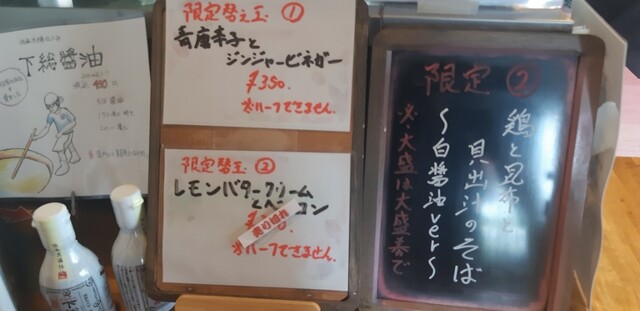 下総醤油
限定替え玉 ①
青唐辛子と
ジンジャービネガー
¥350.
※ハーフできません.
限定替玉 ②
レモンバタークリーム
とベーコン
売り切れ
※ハーフできません.
限定 ②
鶏と昆布と
貝出汁のそば
～白醤油ver～
※大盛は大盛券で